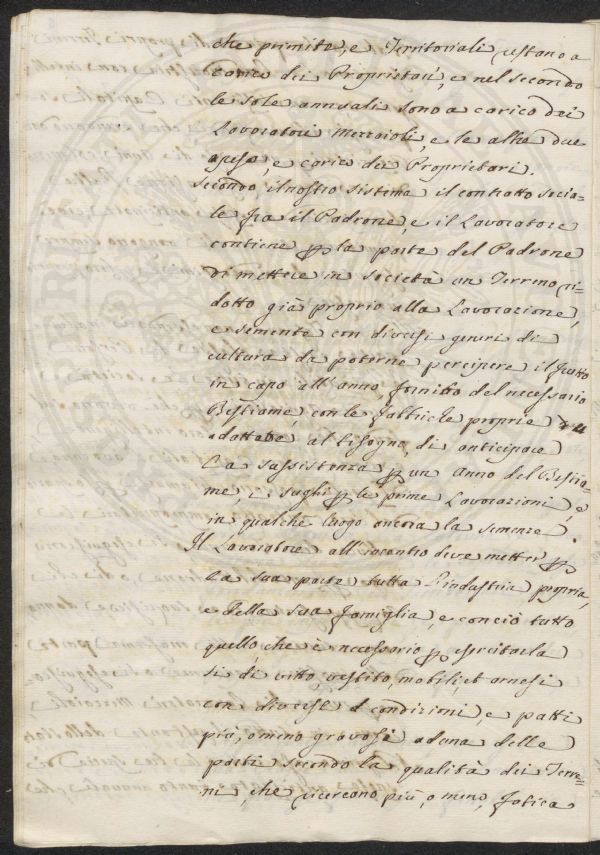 che primite, e Territoriali restano a
carico dei Proprietarj, e nel secondo
le sole annuali sono a carico dei
Lavoratori Mezzaioli, e le altre due
a peso, e carico dei Proprietari.
Secondo il nostro sistema il contratto socia=
le fra il Padrone, e il Lavoratore
contiene p la parte del Padrone
di mettere in società un Terreno ri=
dotto già proprio alla Lavorazione,
e semente con diversi generi di
cultura da poterne percipere il frutto
in capo all'anno, fornito del necessario
Bestiame, con le fabbriche proprie, ed
adattate al bisogno, di anticipare
la sussistenza p un anno del Bestia=
me, i sughi p le prime Lavorazioni, e
in qualche luogo ancora la semenze.
Il Lavoratore all'incontro deve metter p
la sua parte tutta l'industria propria,
e della sua famiglia, e con ciò tutto
quello, che è necessario p esercitarla
si di vitto, vestito, mobili, et arnesi
con diverse condizioni, e patti
più, o meno gravosi ad una delle
parti secondo la qualità dei Terre=
ni, che ricercono più, o meno, fatica